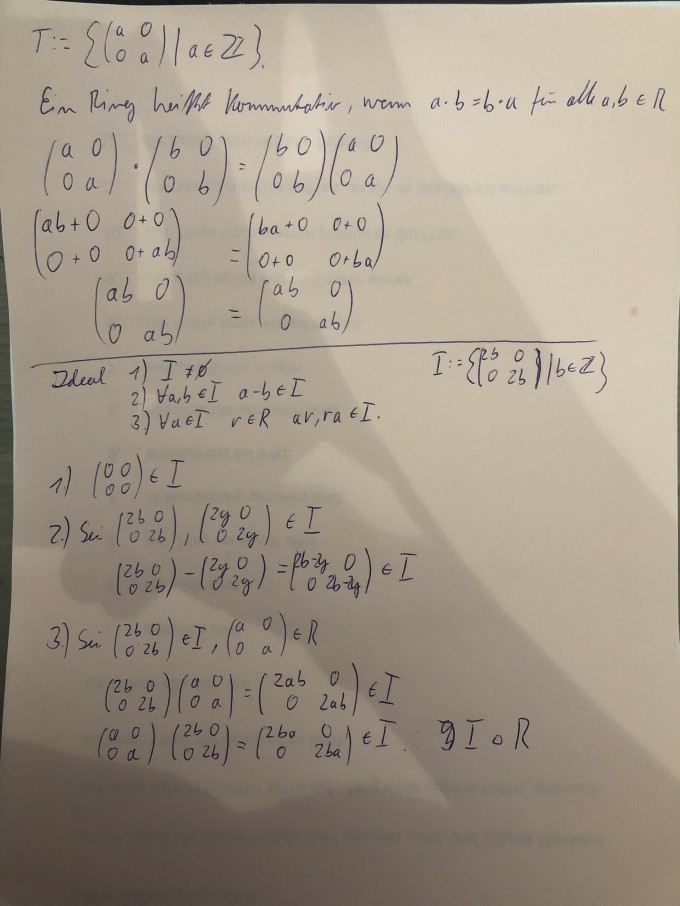 T := {(a 0 / 0 a) | a ∈ ℤ}.
Ein Ring heißt kommutativ, wenn a·b=b·a für alle a,b ∈ R
(a 0 / 0 a) · (b 0 / 0 b) = (b 0 / 0 b) (a 0 / 0 a)
(ab+0 0+0 / 0+0 0+ab) = (ba+0 0+0 / 0+0 0+ba)
(ab 0 / 0 ab) = (ab 0 / 0 ab)
Ideal 1) I ≠ ∅ I := {(2b 0 / 0 2b) | b ∈ ℤ}
2) ∀a,b ∈ I a-b ∈ I
3.) ∀a ∈ I r ∈ R ar, ra ∈ I.
1.) (0 0 / 0 0) ∈ I
2.) Sei (2b 0 / 0 2b), (2y 0 / 0 2y) ∈ I
(2b 0 / 0 2b) - (2y 0 / 0 2y) = (2b-2y 0 / 0 2b-2y) ∈ I
3.) Sei (2b 0 / 0 2b) ∈ I, (a 0 / 0 a) ∈ R
(2b 0 / 0 2b) (a 0 / 0 a) = (2ab 0 / 0 2ab) ∈ I
(a 0 / 0 a) (2b 0 / 0 2b) = (2ba 0 / 0 2ba) ∈ I I R